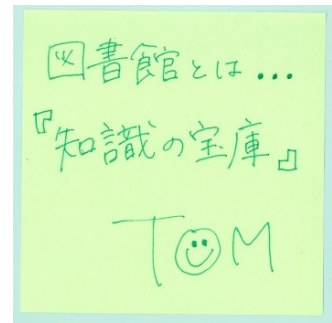 図書館とは...
『知識の宝庫』
TOM